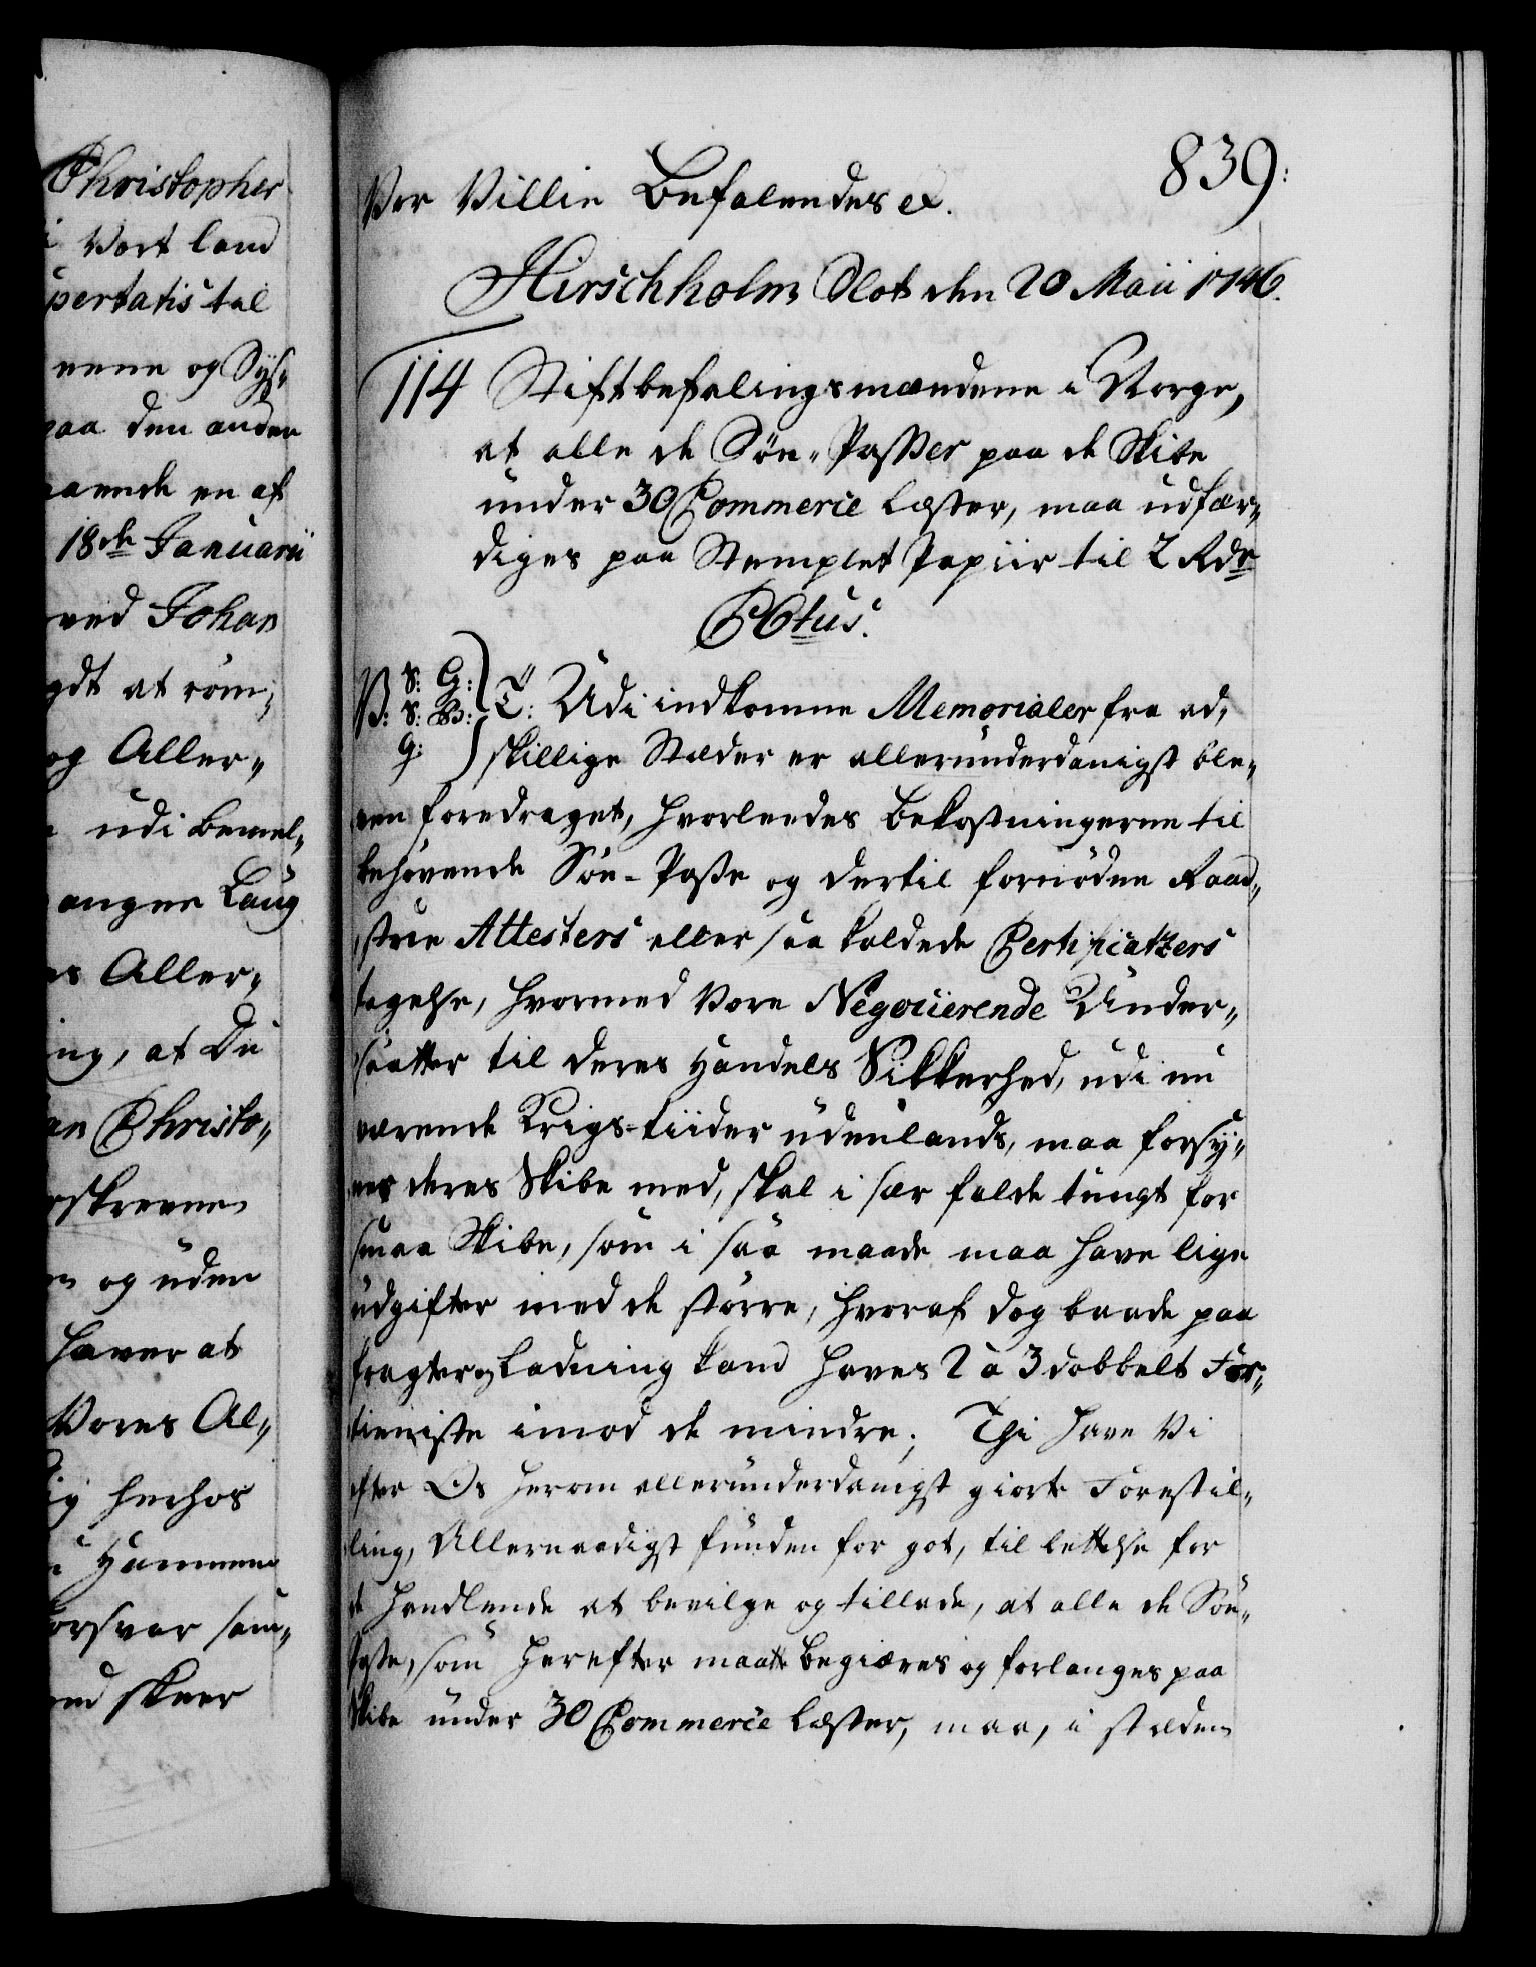 Christopher
Vort land
pertatis tal
nene og Sys„
paa den anden
aaende en af
18de Januarii
ved Johan
gdt at röm„
og Aller„
udi bemel„
anger Laug
Aller„
ing, at Du
an Christo„
rskrevne
og uden
haver at
Vores Al„
herhos
Hammene
orsvar sam„
skeer
839:
Vor Villie Befalendes etc.
Hirschholm Slot den 20 Maii 1746.
114 Stiftbefalingsmændene i Norge,
at alle de Söe-Passer paa de Skibe
under 30 Commercie Læster, maa udfær„
diges paa Stemplet Papiir til 2 Rdr
CCtus.
V: S: G: S: B: G: T: Udi indkomne Memorialer fra ad„
skillige Stæder er allerunderdanigst ble„
ven foredraget, hvorledes bekostningerne til
behövende Söe-Passe og dertil fornödne Raad„
stue Attesters eller saa kaldede Certificatzers
tagelse, hvormed Vore Negociierende Under„
saatter til deres Handels Sikkerhed, udi nu
værende Krigs-tiider udenlands, maa forsÿ„
nes deres Skibe med, skal i sær falde tungt for
smaa Skibe, som i saa maade maa have lige
udgifter med de större, hvoraf dog baade paa
fragter og Ladning kand haves 2 à 3 dobbelt For„
tieniste imod de mindre; Thi have Vi
efter Os herom allerunderdanigst giorte Forestil„
ling, Allernaadigst funden for got, til lettelse for
de handlende at bevilge og tillade, at alle de Söe„
Passe, som herefter maatte begiæres og forlanges paa
Skibe under 30 Commercie Læster, maa, i stæden